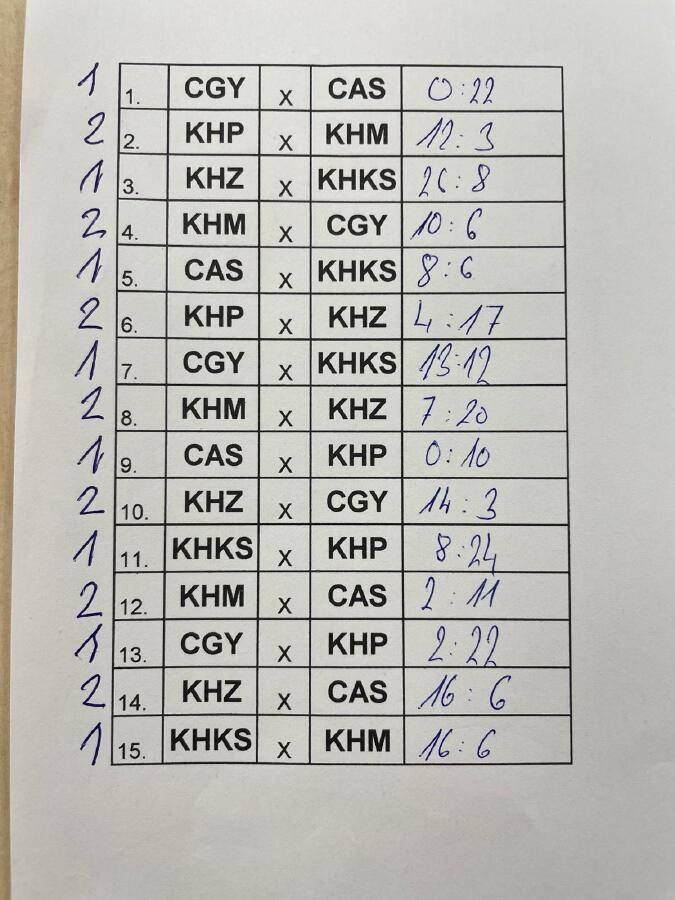 1 1. CGY x CAS 0:22
2 2. KHP x KHM 12:3
1 3. KHZ x KHKS 26:8
2 4. KHM x CGY 10:6
1 5. CAS x KHKS 8:6
2 6. KHP x KHZ 4:17
1 7. CGY x KHKS 13:12
2 8. KHM x KHZ 7:20
1 9. CAS x KHP 0:10
2 10. KHZ x CGY 14:3
1 11. KHKS x KHP 8:24
2 12. KHM x CAS 2:11
1 13. CGY x KHP 2:22
2 14. KHZ x CAS 16:6
1 15. KHKS x KHM 16:6